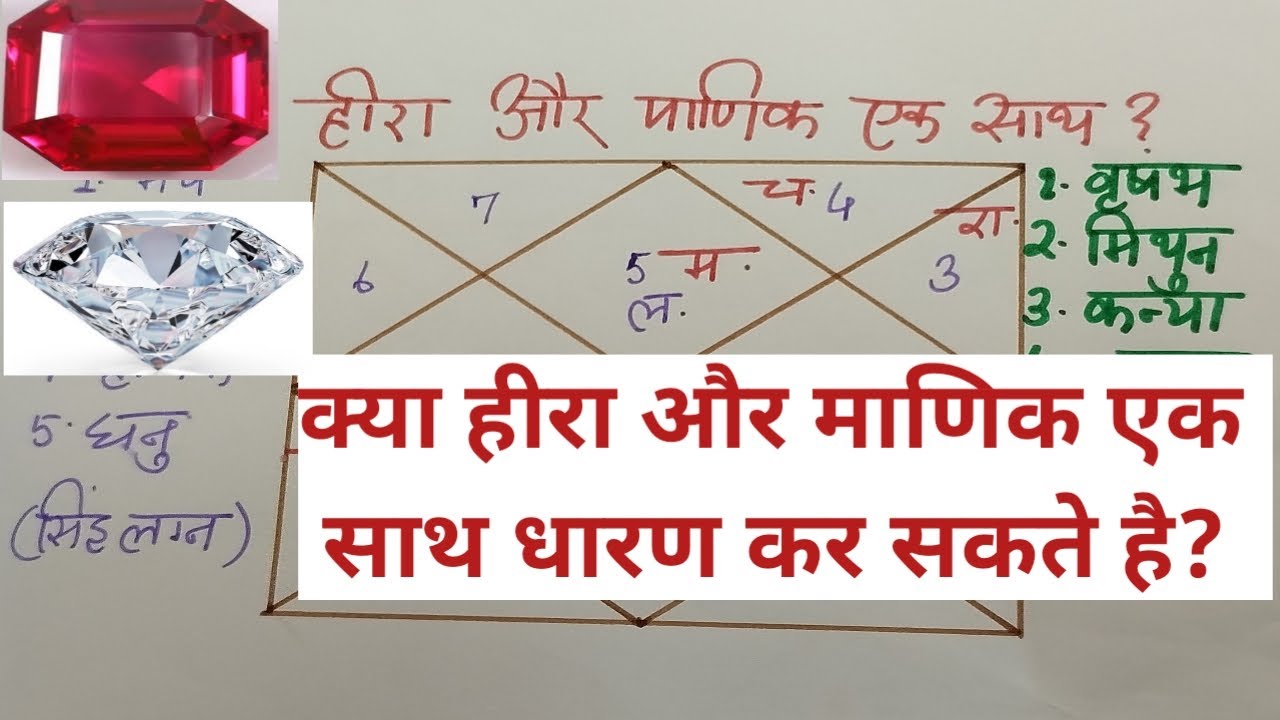 हीरा और माणिक एक साथ ?
7
च. 4
रा.
6
5 म.
ल.
3
1. वृषभ
2. मिथुन
3. कन्या
5. धनु
(सिंह लग्न)
क्या हीरा और माणिक एक
साथ धारण कर सकते है?